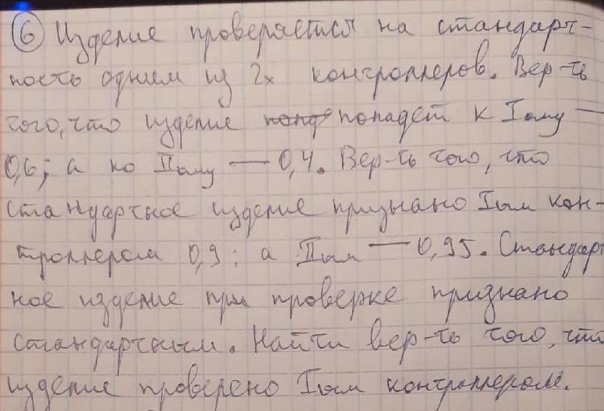 ⑥ Изделие проверяется на стандарт-
ность одним из 2х контроллеров. Вер-ть
того, что изделие попадет к Iому —
0,6; а ко IIому — 0,4. Вер-ть того, что
стандартное изделие признано Iым кон-
троллером 0,9; а IIым — 0,95. Стандарт
ное изделие при проверке признано
стандартным. Найти вер-ть того, что
изделие проверено Iым контроллером.